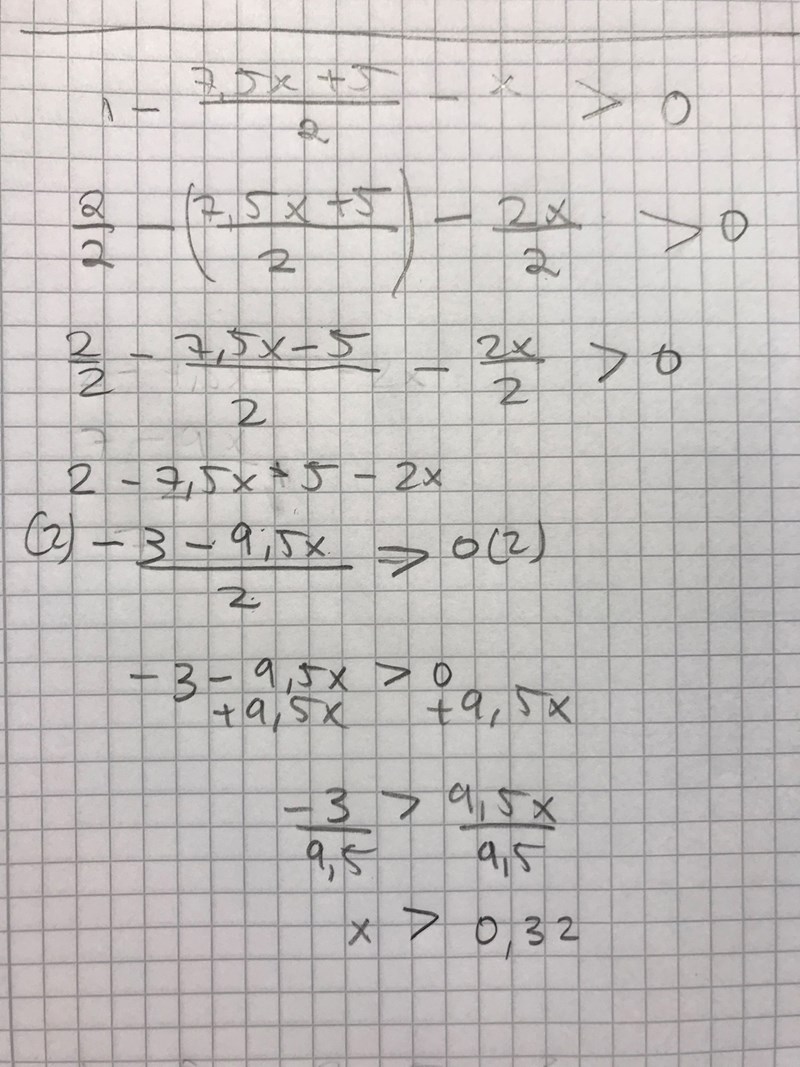 1 - (7,5x + 5)/2 - x > 0
2/2 - ((7,5x + 5)/2) - 2x/2 > 0
2/2 - (7,5x - 5)/2 - 2x/2 > 0
2 - 7,5x + 5 - 2x
(2) (-3 - 9,5x)/2 => 0(2)
-3 - 9,5x > 0
+9,5x +9,5x
-3/9,5 > 9,5x/9,5
x > 0,32